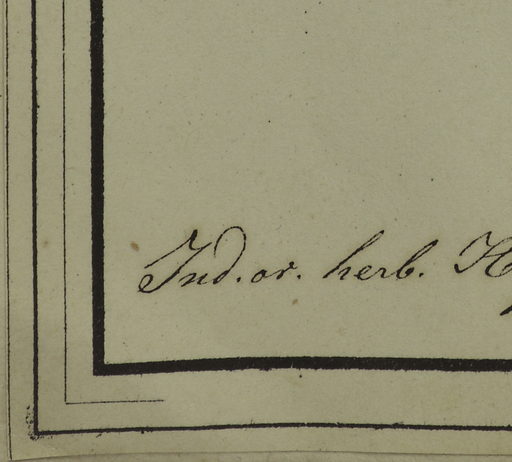 Ind. or. herb.